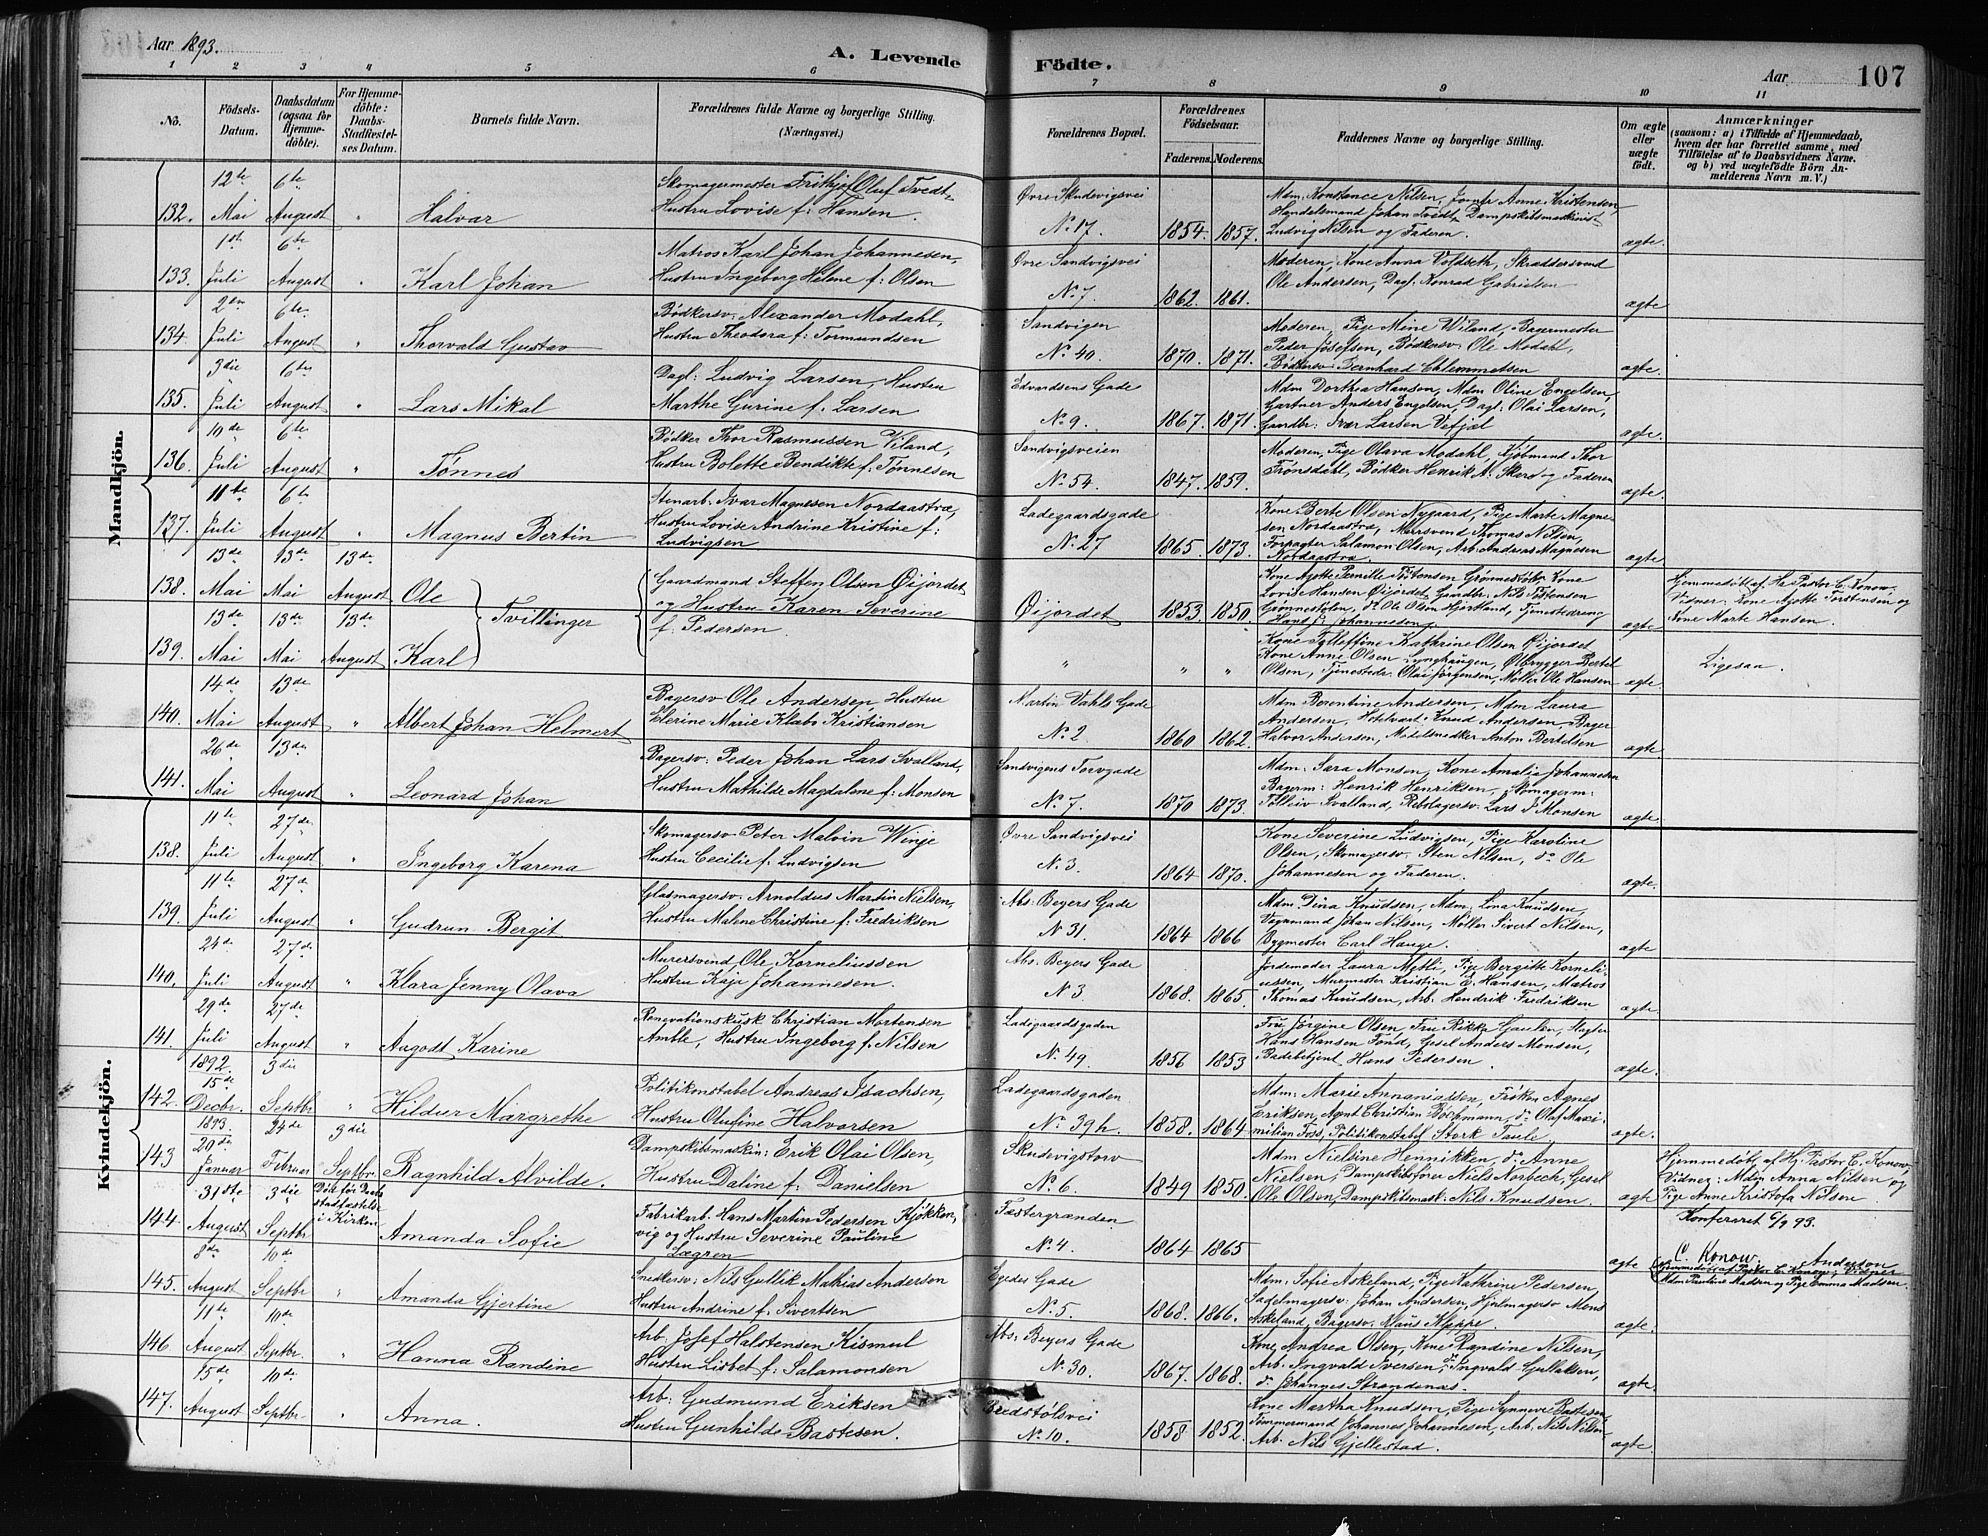 Aar 1893.
A. Levende
Födte.
Aar
107
1 2 3 4 5 6 7 8 9 10 11
No.
Födsels-Datum.
Daabsdatum (ogsaa for Hjemme-döbte).
For Hjemme-döbte: Daabs-Stadfæstel-ses Datum.
Barnets fulde Navn.
Forældrenes fulde Navne og borgerlige Stilling. (Næringsvei.)
Forældrenes Bopæl.
Forældrenes Födselsaar.
Faderens. Moderens.
Faddernes Navne og borgerlige Stilling.
Om ægte eller uægte födt.
Anmærkninger
(saasom: a) i Tilfælde af Hjemmedaab, hvem der har forrettet samme, med Tilföielse af to Daabsvidners Navne, og b) ved uægtefödte Börn Anmelderens Navn m. V.)
Mandkjön.
132. 12te Mai 6te August " Halvar
Skomagermester Frithjof Oluf Tvedt,
Hustru Lovise f: Hansen.
Øvre Skudevigsvei No 17. 1854. 1857.
Mdm: Konstance Nilsen, Jomfr Anne Kristensen,
Handelsmand Johan Tvedt, Dampskibsmaskinist
Ludvig Nilsen og Faderen. ægte.
133. 1ste Juli 6te August " Karl Johan
Matros Karl Johan Johannesen,
Hustru Ingeborg Helene f: Olsen
Øvre Sandvigsvei No 7. 1862. 1861.
Moderen, Kone Anna Voldseth, Skreddersvend
Ole Andersen, Dagl: Konrad Gabrielsen ægte
134. 2den Juli 6te August " Thorvald Gustav
Bødkersv: Alexander Modahl,
Hustru Theodora f: Tormundsen
Sandvigen No 40. 1870. 1871.
Moderen, Pige Mine Wiland, Bagermester
Peder Josefsen, Bødkersv: Ole Modahl,
Bødkersv Bernhard Clemmetsen ægte.
135. 3die Juli 6te August " Lars Mikal
Dagl: Ludvig Larsen, Hustru
Marthe Gurine f: Larsen
Edvardsens Gade No 9. 1867. 1871.
Mdm Dorthea Hansen, Mdm Oline Engelsen,
Gartner Anders Engelsen, Dagl: Olai Larsen,
Gaardbr: Ivar Larsen ægte.
136. 10de Juli 6te August " Tønnes
Bødker Thor Rasmussen Viland,
Hustru Bolette Bendikte f: Tønnesen
Sandvigsveien No 54. 1847. 1859.
Moderen, Pige Olava Modahl, Kjøbmand Thor
Trönsdahl, Bødker Henrik A. Skard og Faderen ægte
137. 11te Juli 6te August " Magnus Bertin
Stenarb: Ivar Magnesen Nordaastræ,
Hustru Lovise Andrine Kristine f:
Ludvigsen
Ladegaardsgade No 27 1865. 1873.
Kone Berte Olsen Nygaard, Pige Marte Magne-
sen Nordaastræ, Murrsvend Thomas Nilsen,
Forpagter Salamon Olsen, Arb: Andreas Magnesen
Nordaastræ. ægte
138. 13de Mai 13de Mai 13de August Ole
Tvillinger
Gaardmand Steffen Olsen Øijordet
og Hustru Karen Severine
f. Pedersen.
Øijordet 1853. 1850.
Kone Agotte Pernille Grønnestølen, Kone
Lovise Hansen Øijordet, Gaardbr: Nils
Grønnestølen, do Ole Olsen Hjortland, Tjenestedreng
Hans J. Johannesen. ægte
Hjemmedøbt af Hr Pastor C. Konow.
Vidner: Kone Agotte Torstensen og
Kone Marte Hansen.
139. 13de Mai 13de Mai 13de August Karl
" " "
Kone Katharine Olsen Øijordet
Kone Anne Olsen Lynghaugen, Ølbrygger Bertel
Olsen, Tjenestedr: Olai Jørgensen, Møller Ole Hansen ægte.
Ligesaa.
140. 14de Mai 13de August " Albert Johan Helmert
Bagersv Ole Andersen, Hustru
Elerine Marie Klabo Kristiansen
Martin Vahls Gade No 2 1860 1862.
Mdm Berentine Andersen, Mdm Laura
Andersen, Hotelvært Knud Andersen, Bager
Halvor Andersen, Modelsnedker Anton Bertelsen ægte.
141. 26de Mai 13de August " Leonard Johan
Bagersv: Peder Johan Lars Svalland,
Hustru Mathilde Magdalene f: Monsen
Sandvigens Torvgade No 7. 1870 1873.
Mdm: Sara Monsen, Kone Amalia Johannesen
Bagerm: Henrik Henriksen, Skomagerm:
Tolleiv Svalland, Rebslagersv: Lars J. Monsen ægte.
Kvindekjön.
138. 11te Juli 27de August " Ingeborg Karena
Skomagersv Peter Malvin Winje
Hustru Cecilie f: Ludvigsen
Øvre Sandvigsvei No 3. 1864 1870.
Kone Severine Ludvigsen, Pige Karoline
Olsen, Skomagersv. Sten Nilsen, do Ole
Johannesen og Faderen. ægte.
139. 11te Juli 27de August " Gudrun Bergit
Glasmagersv. Arnoldus Martin Nielsen,
Hustru Malene Christine f: Fredriksen
Abs: Beyers Gade No 31. 1864 1866
Mdm: Dina Knudsen, Mdm: Lona Knudsen,
Vognmand Johan Nilsen, Møller Sivert Nilsen,
Bygmester Carl Hauge. ægte
140. 24de Juli 27de August " Klara Jenny Olava
Murersvend Ole Korneliussen
Hustru Kaja Johannesen.
Abs: Beyers Gade No 3. 1868. 1865.
Jordemoder Laura Myhli, Pige Bergitte Korneli-
ussen, Murmester Kristian E. Hansen, Matros
Thomas Knudsen, Arb. Hendrik Fredriksen ægte.
141. 29de Juli 27de August " Augodt Karine
Renovationskusk Christian Mortensen
Amble, Hustru Ingeborg f. Nilsen
Ladegaardsgaden No. 49. 1856 1853
Fru Jørgine Olsen, Fru Rikka Gaulen, Slagter
Hans Hansen Tønd, Gesel Anders Monsen,
Badebetjent Hans Pedersen. ægte.
142. 1892 15de Decbr. 3die Septbr " Hildur Margrethe
Politikonstabel Andreas Isachsen,
Hustru Olufine Halvorsen
Ladegaardsgaden No 39h. 1858. 1864
Mdm: Marie Annaniassen, Frøken Agnes
Eriksen, Agnt Christian Børhmann, do Olaf Maxi-
milian Foss, Politikonstabel Stork Taule. ægte.
143 1893. 20de Januar 24de Februar 3die Septbr. Ragnhild Alvilde.
Dampskibsmaskin: Erik Olai Olsen,
Hustru Daline f: Danielsen
Skudevigstorv No 6. 1849 1850.
Mdm Nielsine Hennikken, do Anne
Nielsen, Dampskibsfører Niels Norbech, Gesel
Ole Olsen, Dampskibsmask: Nils Knudsen. ægte
Hjemmedøbt af Hr. Pastor C. Konow,
Vidner: Mdm Anna Nilsen og
Pige Anne Kristofa Nilsen.
144. 31ste August 3die Septbr Død før Daabs stadfæstelse i Kirken Amanda Sofie
Fabrikarb. Hans Martin Pedersen Kjøkken,
vig og Hustru Severine Pauline
Lægren
Fæstergrænden No. 4. 1864 1865 ægte
Konfereret 6/9 93.
C. Konow.
Hjemmedøbt af Pastor C. Konow. Vidner
Mdm Pauline Madsen og Pige Emma Madsen.
145. 8de August 10de Septbr " Amanda Gjertine
Snedkersv: Nils Gullik Mathias Andersen
Hustru Andrine f. Sivertsen
Egedes Gade No. 5. 1868. 1866.
Mdm: Sofie Askeland, Pige Kathrine Pedersen
Sadelmagersv: Johan Andersen, Hjulmagersv Mons
Askeland, Bagersv: Klaus Kleppe. ægte.
146. 11te August 10de Septbr. " Hanna Randine
Arb. Josef Halstensen Kismul
Hustru Lisbet f: Salamonsen
Abs: Beyers Gade No. 30. 1867. 1868.
Kone Andrea Olsen, Kone Randine Nilsen,
Arb. Ingvald Iversen, do Ingvald Gullaksen,
do Johannes Strandenas. ægte.
147. 15de August 10de Septbr " Anna.
Arb: Gudmund Eriksen
Hustru Gunhilde Bastesen.
Bredstølsvei No. 10. 1858 1852.
Kone Martha Knudsen, Pige Synneve Bastesen
Tømmermand Johannes Johannesen, Arb. Nils Nilsen
Arb. Nils Gjellestad. ægte.